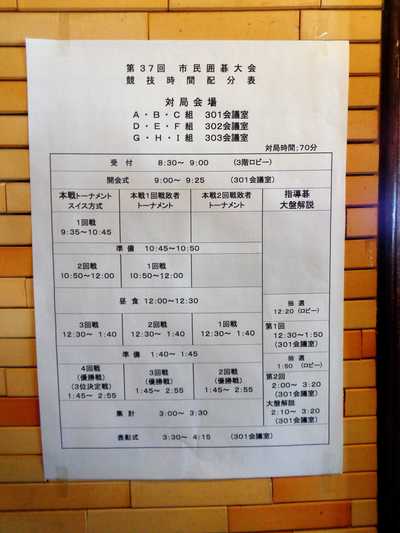 第37回 市民囲碁大会
競技時間配分表
対局会場
A・B・C組 301会議室
D・E・F組 302会議室
G・H・I組 303会議室
対局時間:70分
受付 8:30~9:00 (3階ロビー)
開会式 9:00~9:25 (301会議室)
本戦トーナメント
スイス方式
本戦1回戦敗者
トーナメント
本戦2回戦敗者
トーナメント
指導碁
大盤解説
1回戦
9:35~10:45
準備 10:45~10:50
2回戦
10:50~12:00
1回戦
10:50~12:00
昼食 12:00~12:30
抽選
12:20 (ロビー)
3回戦
12:30~1:40
2回戦
12:30~1:40
1回戦
12:30~1:40
第1回
12:30~1:50
(301会議室)
準備 1:40~1:45
抽選
1:50 (ロビー)
4回戦
(優勝戦)
(3位決定戦)
1:45~2:55
3回戦
(優勝戦)
1:45~2:55
2回戦
(優勝戦)
1:45~2:55
第2回
2:00~3:20
(301会議室)
大盤解説
2:10~3:20
(301会議室)
集計 3:00~3:30
表彰式 3:30~4:15 (301会議室)